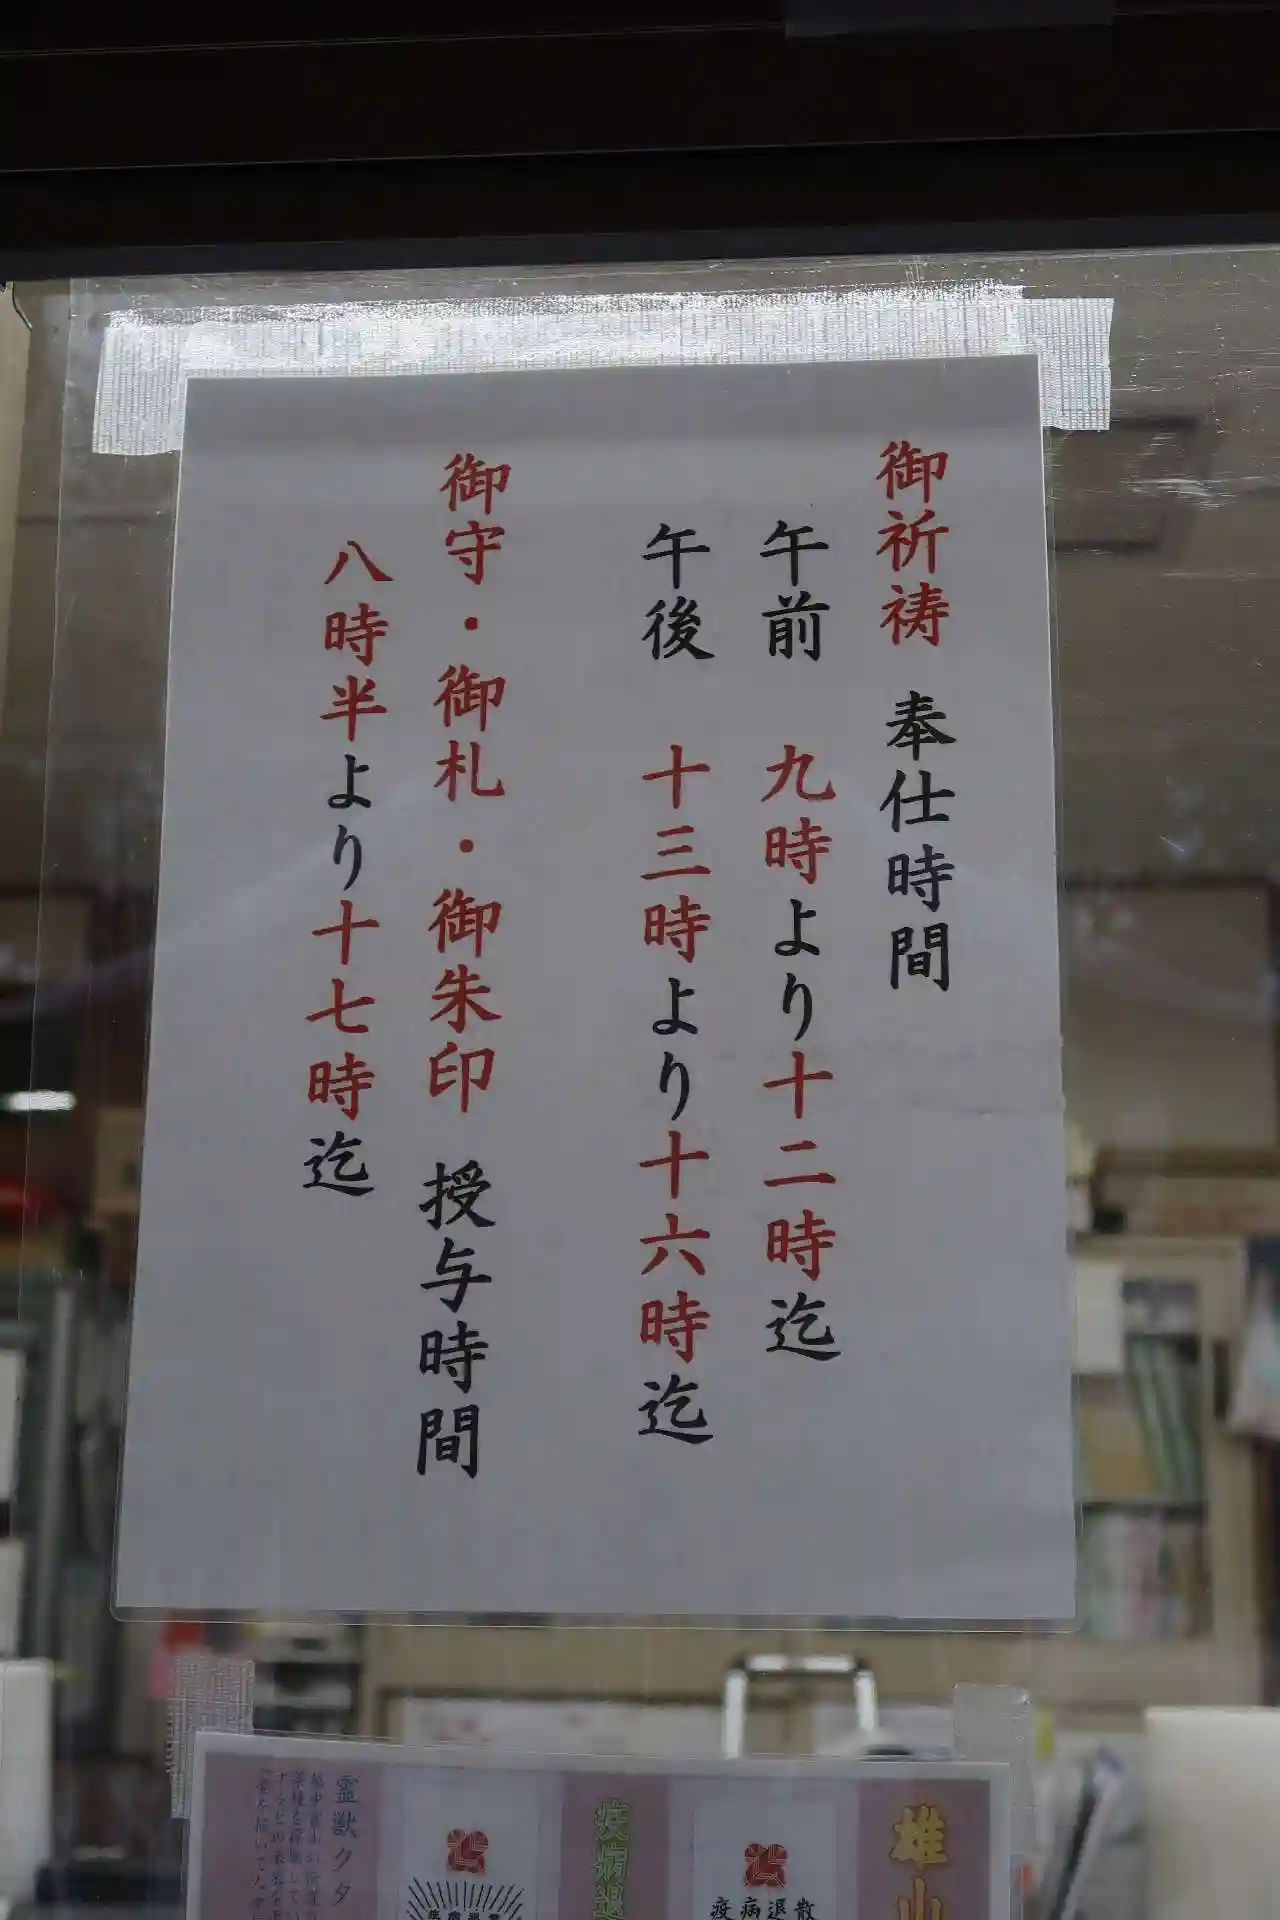 御祈祷 奉仕時間
午前 九時より十二時迄
午後 十三時より十六時迄
御守・御札・御朱印 授与時間
八時半より十七時迄
雄山
疫病退散
疫病退
霊獣クタ